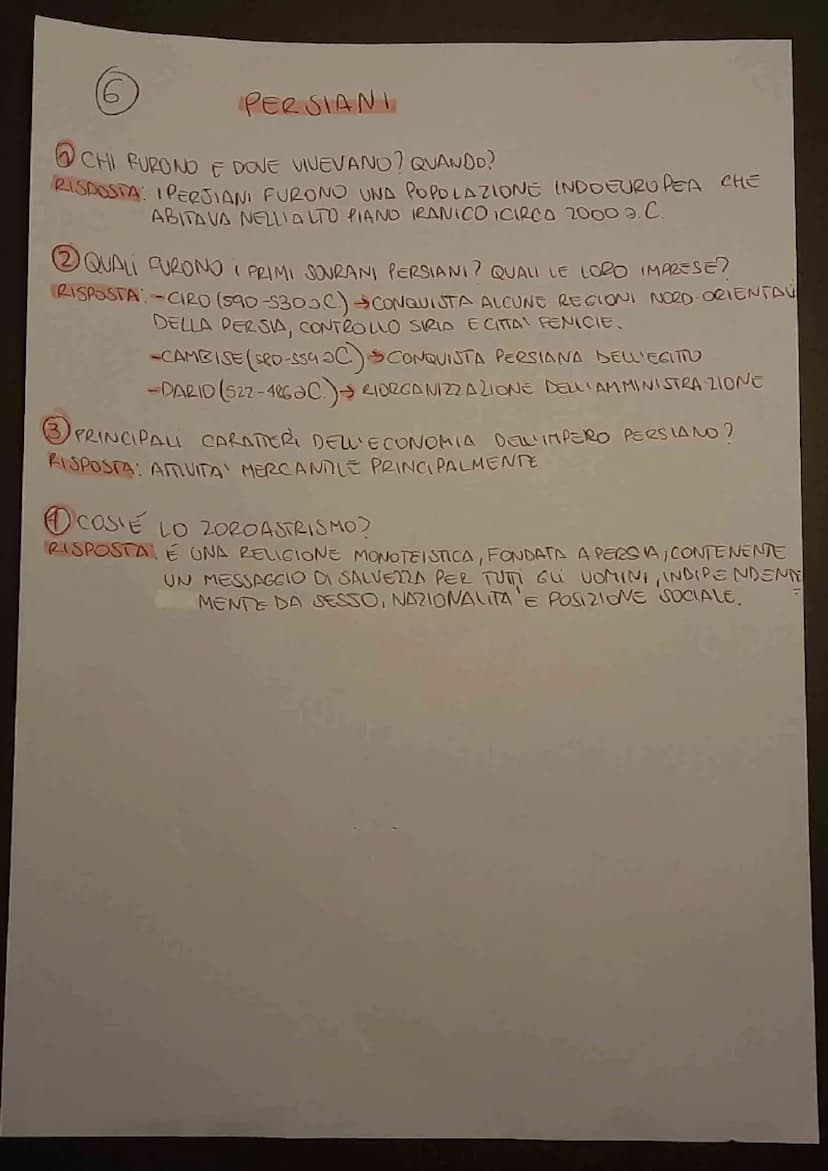 6
PERSIANI
1 CHI FURONO E DOVE VIVEVANO? QUANDO?
RISPOSTA: I PERSIANI FURONO UNA POPOLAZIONE INDOEUROPEA CHE
ABITAVA NELL'ALTO PIANO IRANICO, CIRCA 2000 a.C.
2 QUALI FURONO I PRIMI SOVRANI PERSIANI? QUALI LE LORO IMPRESE?
RISPOSTA: -CIRO (590-530 a C) → CONQUISTA ALCUNE REGIONI NORD-ORIENTALI
DELLA PERSIA, CONTROLLO SIRIA E CITTA' FENICIE.
-CAMBISE (580-559 a C.) → CONQUISTA PERSIANA DELL'EGITTO
-DARIO (522-486 a C.) → RIORGANIZZAZIONE DELL'AMMINISTRAZIONE
3 PRINCIPALI CARATTERI DELL'ECONOMIA DELL'IMPERO PERSIANO?
RISPOSTA: ATTIVITA' MERCANTILE PRINCIPALMENTE
4 COS'É LO ZOROASTRISMO?
RISPOSTA: É UNA RELIGIONE MONOTEISTICA, FONDATA A PERSIA; CONTENENTE
UN MESSAGGIO DI SALVEZZA PER TUTTI GLI UOMINI, INDIPENDENTE
MENTE DA SESSO, NAZIONALITA' E POSIZIONE SOCIALE.